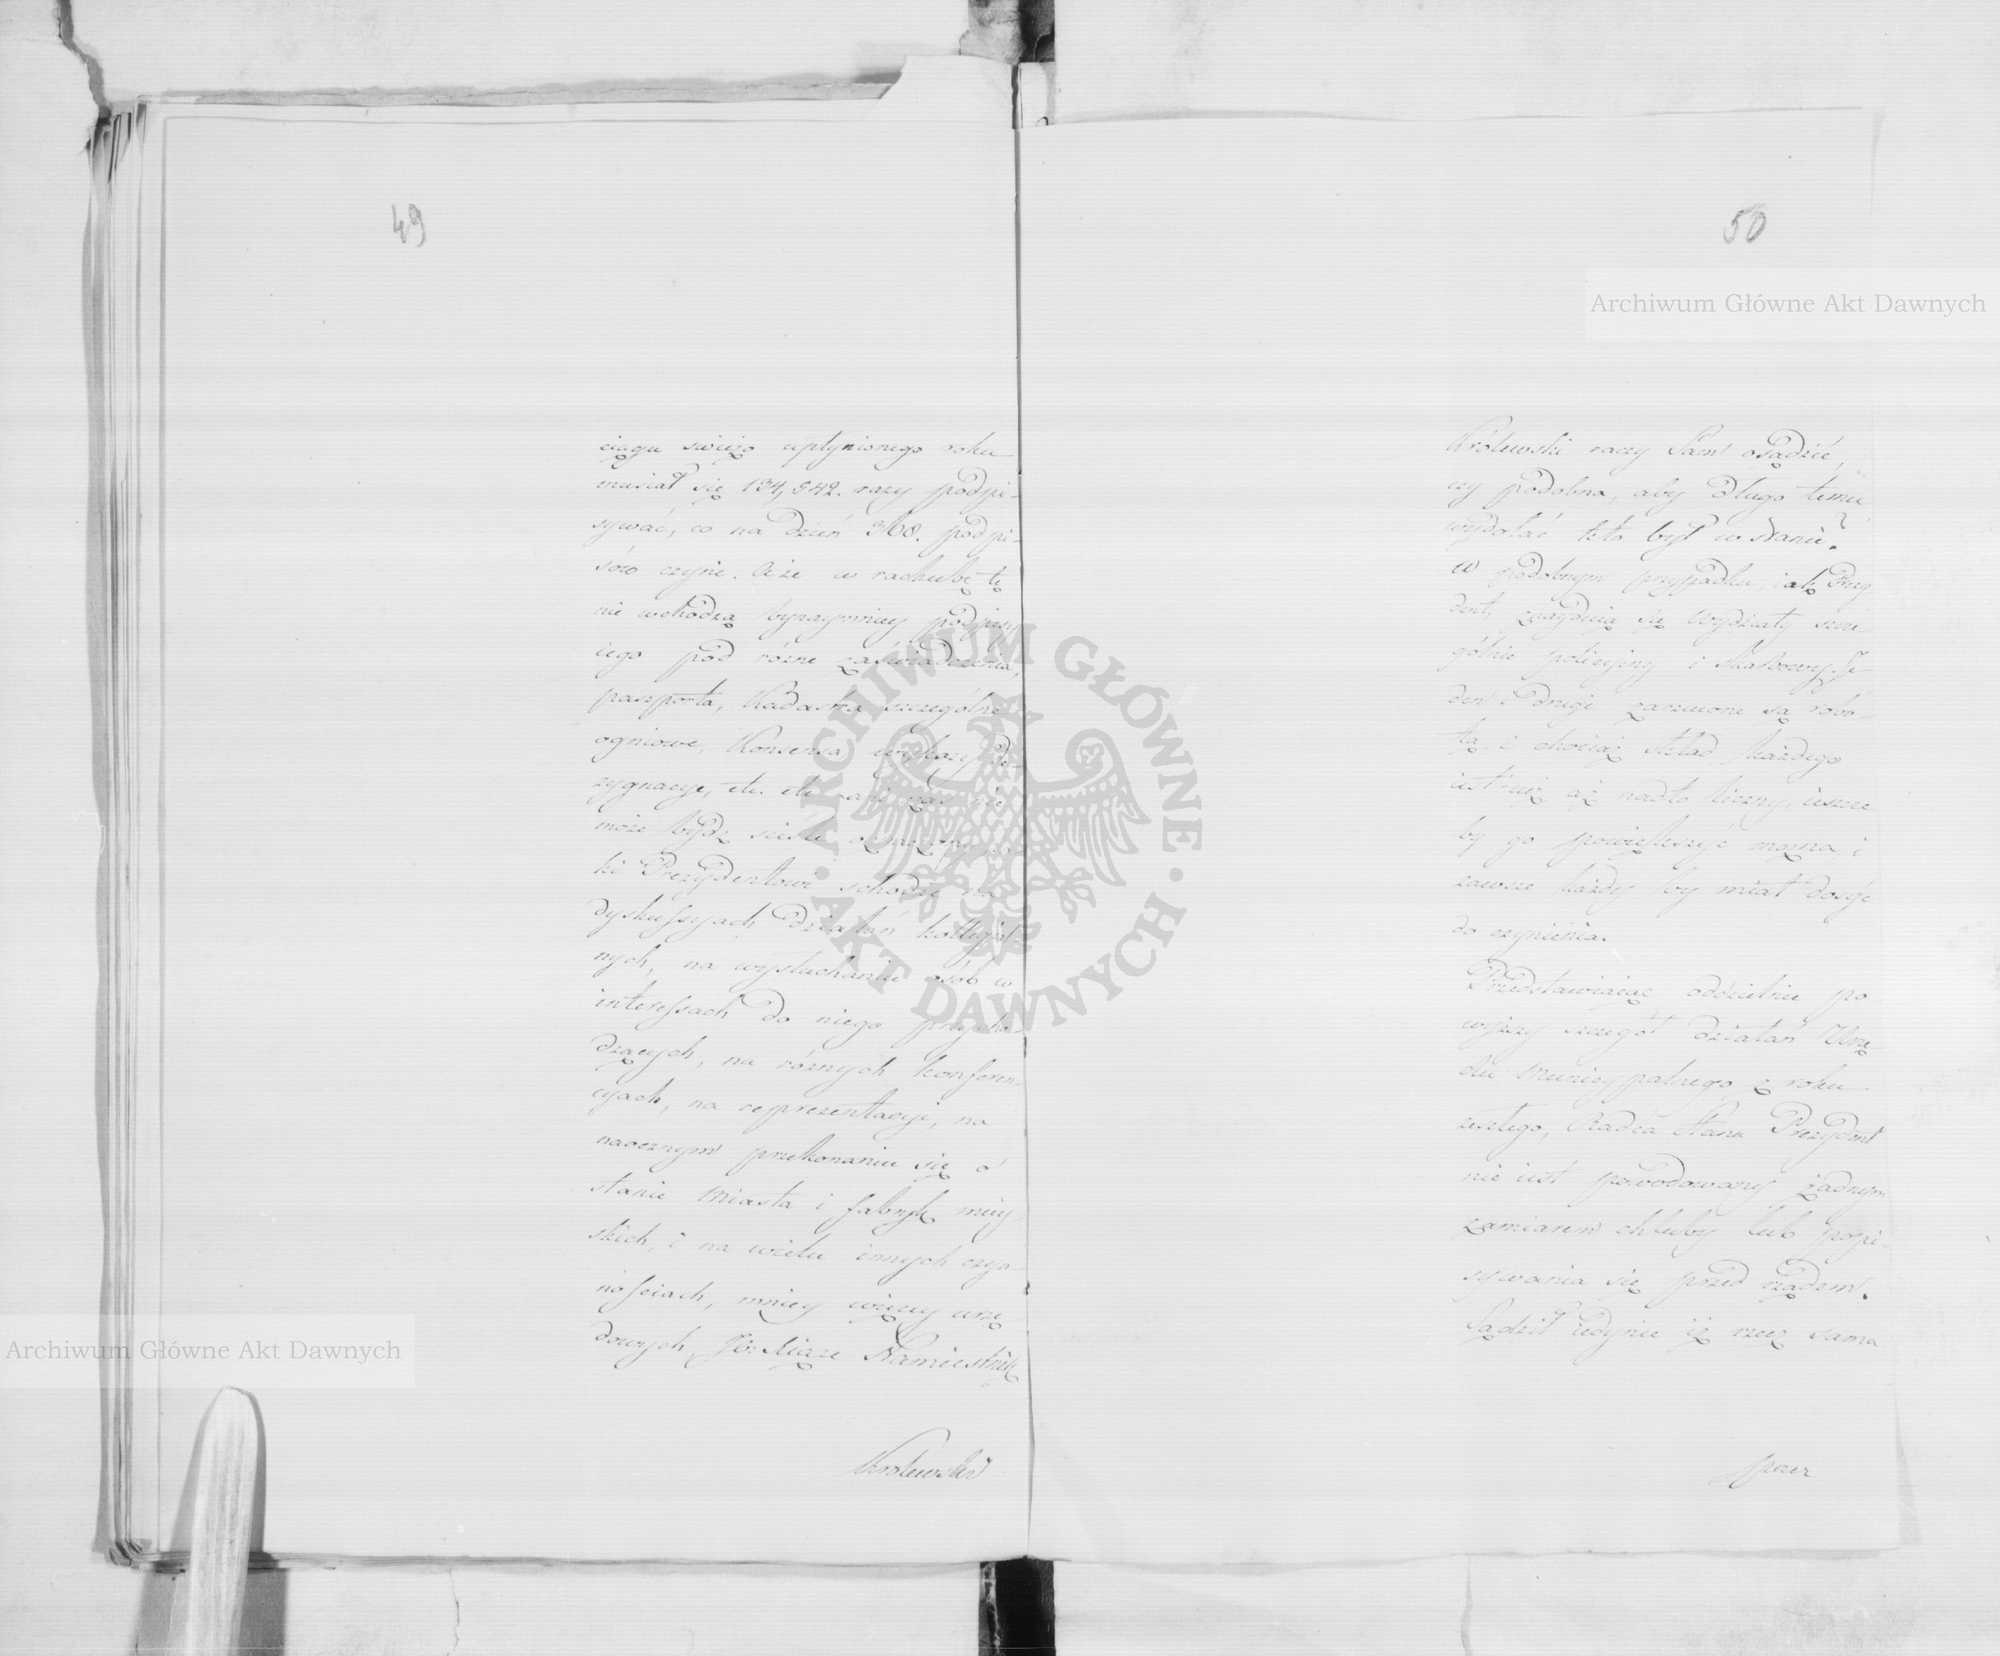 49
ciągu świeżo upłynionego roku
musiał się 134,542. razy podpi-
sywać, co na dzień 368. podpi-
sów czyni. A że w rachubę tę
nie wchodzą bynaymniey podpisy
iego pod różne zaświadczenia,
paszporta, Kadastra szczególne
ogniowe, Konsensa, wykazy,
zygnacye, etc. etc.
może bydź ściśle
ki Prezydentowi schodzi na
dyskussyach działań kollegial-
nych, na wysłuchaniu osób w
interessach do niego przycho-
dzących, na różnych konferen-
cyach, na reprezentacyi, na
naocznym przekonaniu się o
stanie Miasta i fabryk miey-
skich, i na wielu innych czyn-
nościach, mniey więcey urzę-
dowych, JO: Xiąże Namiestnik
Królewski
50
Królewski raczy Sam osądzić,
czy podobna, aby długo temu
wydołać kto był w stanie?
W podobnym przypadku, iak Prezy-
dent, znayduią się Wydziały szcze-
gólnie policyjny i Skarbowy. Je-
den i drugi zarzucone są robo-
tą, i chociaż skład każdego
iest iuż aż nadto liczny, ieszcze
by go powiększyć można, i
zawsze każdy by miał dosyć
do czynienia.
Przedstawiaiąc oddzielnie po-
wyższy szczegół działań Urzę-
du Municypalnego z roku
zeszłego, Radca Stanu Prezydent
nie iest powodowany żadnym
zamiarem chluby lub popi-
sywania się przed rządem.
Sądził iedynie iż rzecz sama
przez
Archiwum Główne Akt Dawnych
Archiwum Główne Akt Dawnych
ARCHIWUM GŁÓWNE
AKT DAWNYCH